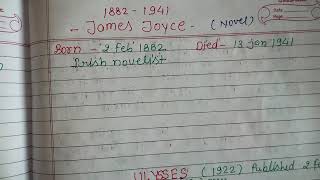 1882 - 1941
- James Joyce - (Novel)
Born - '2 Feb' 1882 Died - 13 Jan 1941
Irish novelist
ULYSSES (1922) Published 2 Fe